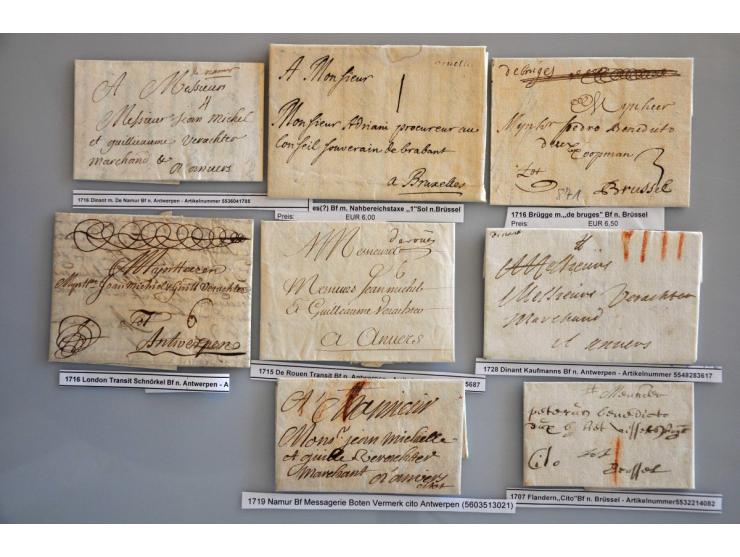 de namur
A Messieurs
Messieur jean michel
et guilleaume verachter
marchand &
a anvers
1716 Dinant m. De Namur Bf n. Antwerpen - Artikelnummer 5536041785
A Monsieur
1
Monsieur Adriani procureur au
Conseil souverain de brabant
a Bruxelles
es(?) Bf m. Nahbereichstaxe „1"Sol n.Brüssel
Preis: EUR 6,00
de bruges
Mynheer
Mynhr pedro Benedicto
Coopman
Tot
Brussel
871
1716 Brügge m.„de bruges" Bf n. Brüssel
Preis: EUR 6,50
Mynheeren
6
Tot
Antwerpen
1716 London Transit Schnörkel Bf n. Antwerpen - A
de roüen
A Messieurs
6
Messieurs Jean michel
& Guilleaume Verachter
a Anvers
1715 De Rouen Transit Bf n. Antwerpen - Artikelnummer
5687
Dinant
A Messieurs
Messieurs Verachter
Marchand
a anvers
1728 Dinant Kaufmanns Bf n. Antwerpen - Artikelnummer 5548283617
A Monsieur
Monsr jean michelle
et guille Verachter
Marchant a anvers
cito
1719 Namur Bf Messagerie Boten Vermerk cito Antwerpen (5603513021)
benedicto
Cito
tot
Brussel
1707 Flandern„Cito"Bf n. Brüssel - Artikelnummer5532214082